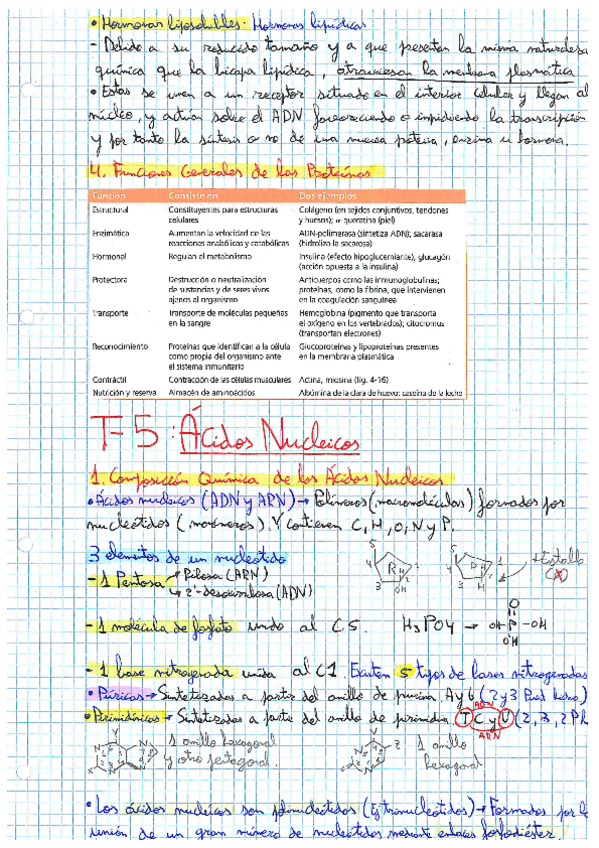 • Hormonas liposolubles. Hormonas lipídicas
- Debido a su reducido tamaño y a que presentan la misma naturaleza
química que la bicapa lipídica, atraviesan la membrana plasmática
• Estas se unen a un receptor situado en el interior celular y llegan al
núcleo, y actúan sobre el ADN favoreciendo o impidiendo la transcripción
y por tanto la síntesis o no de una nueva proteína, enzima u hormona.
4. Funciones Generales de las Proteínas
Función Consiste en Dos ejemplos
Estructural Constituyentes para estructuras celulares Colágeno (en tejidos conjuntivos, tendones y huesos); α-queratina (piel)
Enzimática Aumentan la velocidad de las reacciones anabólicas y catabólicas ADN-polimerasa (sintetiza ADN); sacarasa (hidroliza la sacarosa)
Hormonal Regulan el metabolismo Insulina (efecto hipoglucemiante), glucagón (acción opuesta a la insulina)
Protectora Destrucción o neutralización de sustancias y de seres vivos ajenos al organismo Anticuerpos como las inmunoglobulinas; proteínas, como la fibrina, que intervienen en la coagulación sanguínea
Transporte Transporte de moléculas pequeñas en la sangre Hemoglobina (pigmento que transporta el oxígeno en los vertebrados); citocromos (transportan electrones)
Reconocimiento Proteínas que identifican a la célula como propia del organismo ante el sistema inmunitario Glucoproteínas y lipoproteínas presentes en la membrana plasmática
Contráctil Contracción de las células musculares Actina, miosina (fig. 4-16)
Nutrición y reserva Almacén de aminoácidos Albúmina de la clara de huevo; caseína de la leche
T-5: Ácidos Nucleicos
1. Composición Química de los Ácidos Nucleicos
• Ácidos nucleicos (ADN y ARN) → Polímeros (macromoléculas) formados por
nucleótidos (monómeros). Y contienen C, H, O, N y P.
3 elementos de un nucleótido
- 1 Pentosa → Ribosa (ARN)
↳ 2'-desoxirribosa (ADN)
5 4 R H 3 2 OH 5 4 H H 2 1
- 1 molécula de fosfato unido al C5. H3PO4 → OH-P-OH
O
OH
- 1 base nitrogenada unida al C1. Existen 5 tipos de bases nitrogenadas
• Púricas → Sintetizadas a partir del anillo de purina. A y G (2 y 3
• Pirimidínicas → Sintetizadas a partir del anillo de pirimidina. T C y U (2, 3, 2
ADN
ARN
1 anillo hexagonal
y otro pentagonal.
1 anillo
hexagonal
• Los ácidos nucleicos son polinucleótidos → Formados por la
unión de un gran número de nucleótidos mediante enlaces fosfodiéster.